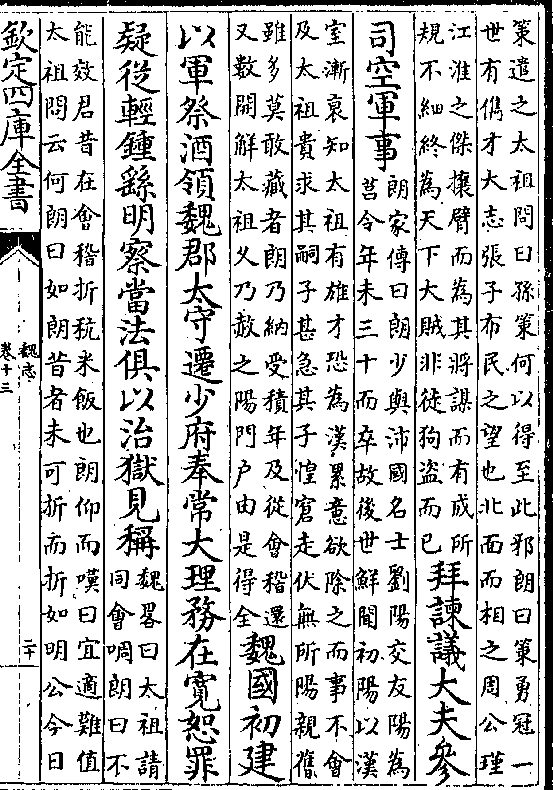 策遣之太祖問曰孫策何以得至此邪朗曰策勇冠一
世有儁才大志張子布民之望也北面而相之周公瑾
江淮之傑攘臂而為其將謀而有成所
規不細終為天下大賊非徒狗盜而已
拜諫議大夫參
司空軍事
朗家傳曰朗少與沛國名士劉陽交友陽為
莒令年未三十而卒故後世鮮聞初陽以漢
室漸衰知太祖有雄才恐為漢累意欲除之而事不會
及太祖貴求其嗣子甚急其子惶窘走伏無所陽親舊
雖多莫敢藏者朗乃納受積年及從會稽還
又數開解太祖乆乃赦之陽門户由是得全
魏國初建
以軍祭酒領魏郡太守遷少府奉常大理務在寛恕罪
疑從輕鍾繇明察當法俱以治獄見稱
魏畧曰太祖請
同會啁朗曰不
能效君昔在會稽折秔米飯也朗仰而嘆曰宜適難值
太祖問云何朗曰如朗昔者未可折而折如明公今日
欽定四庫全書
魏志
卷十三
二十